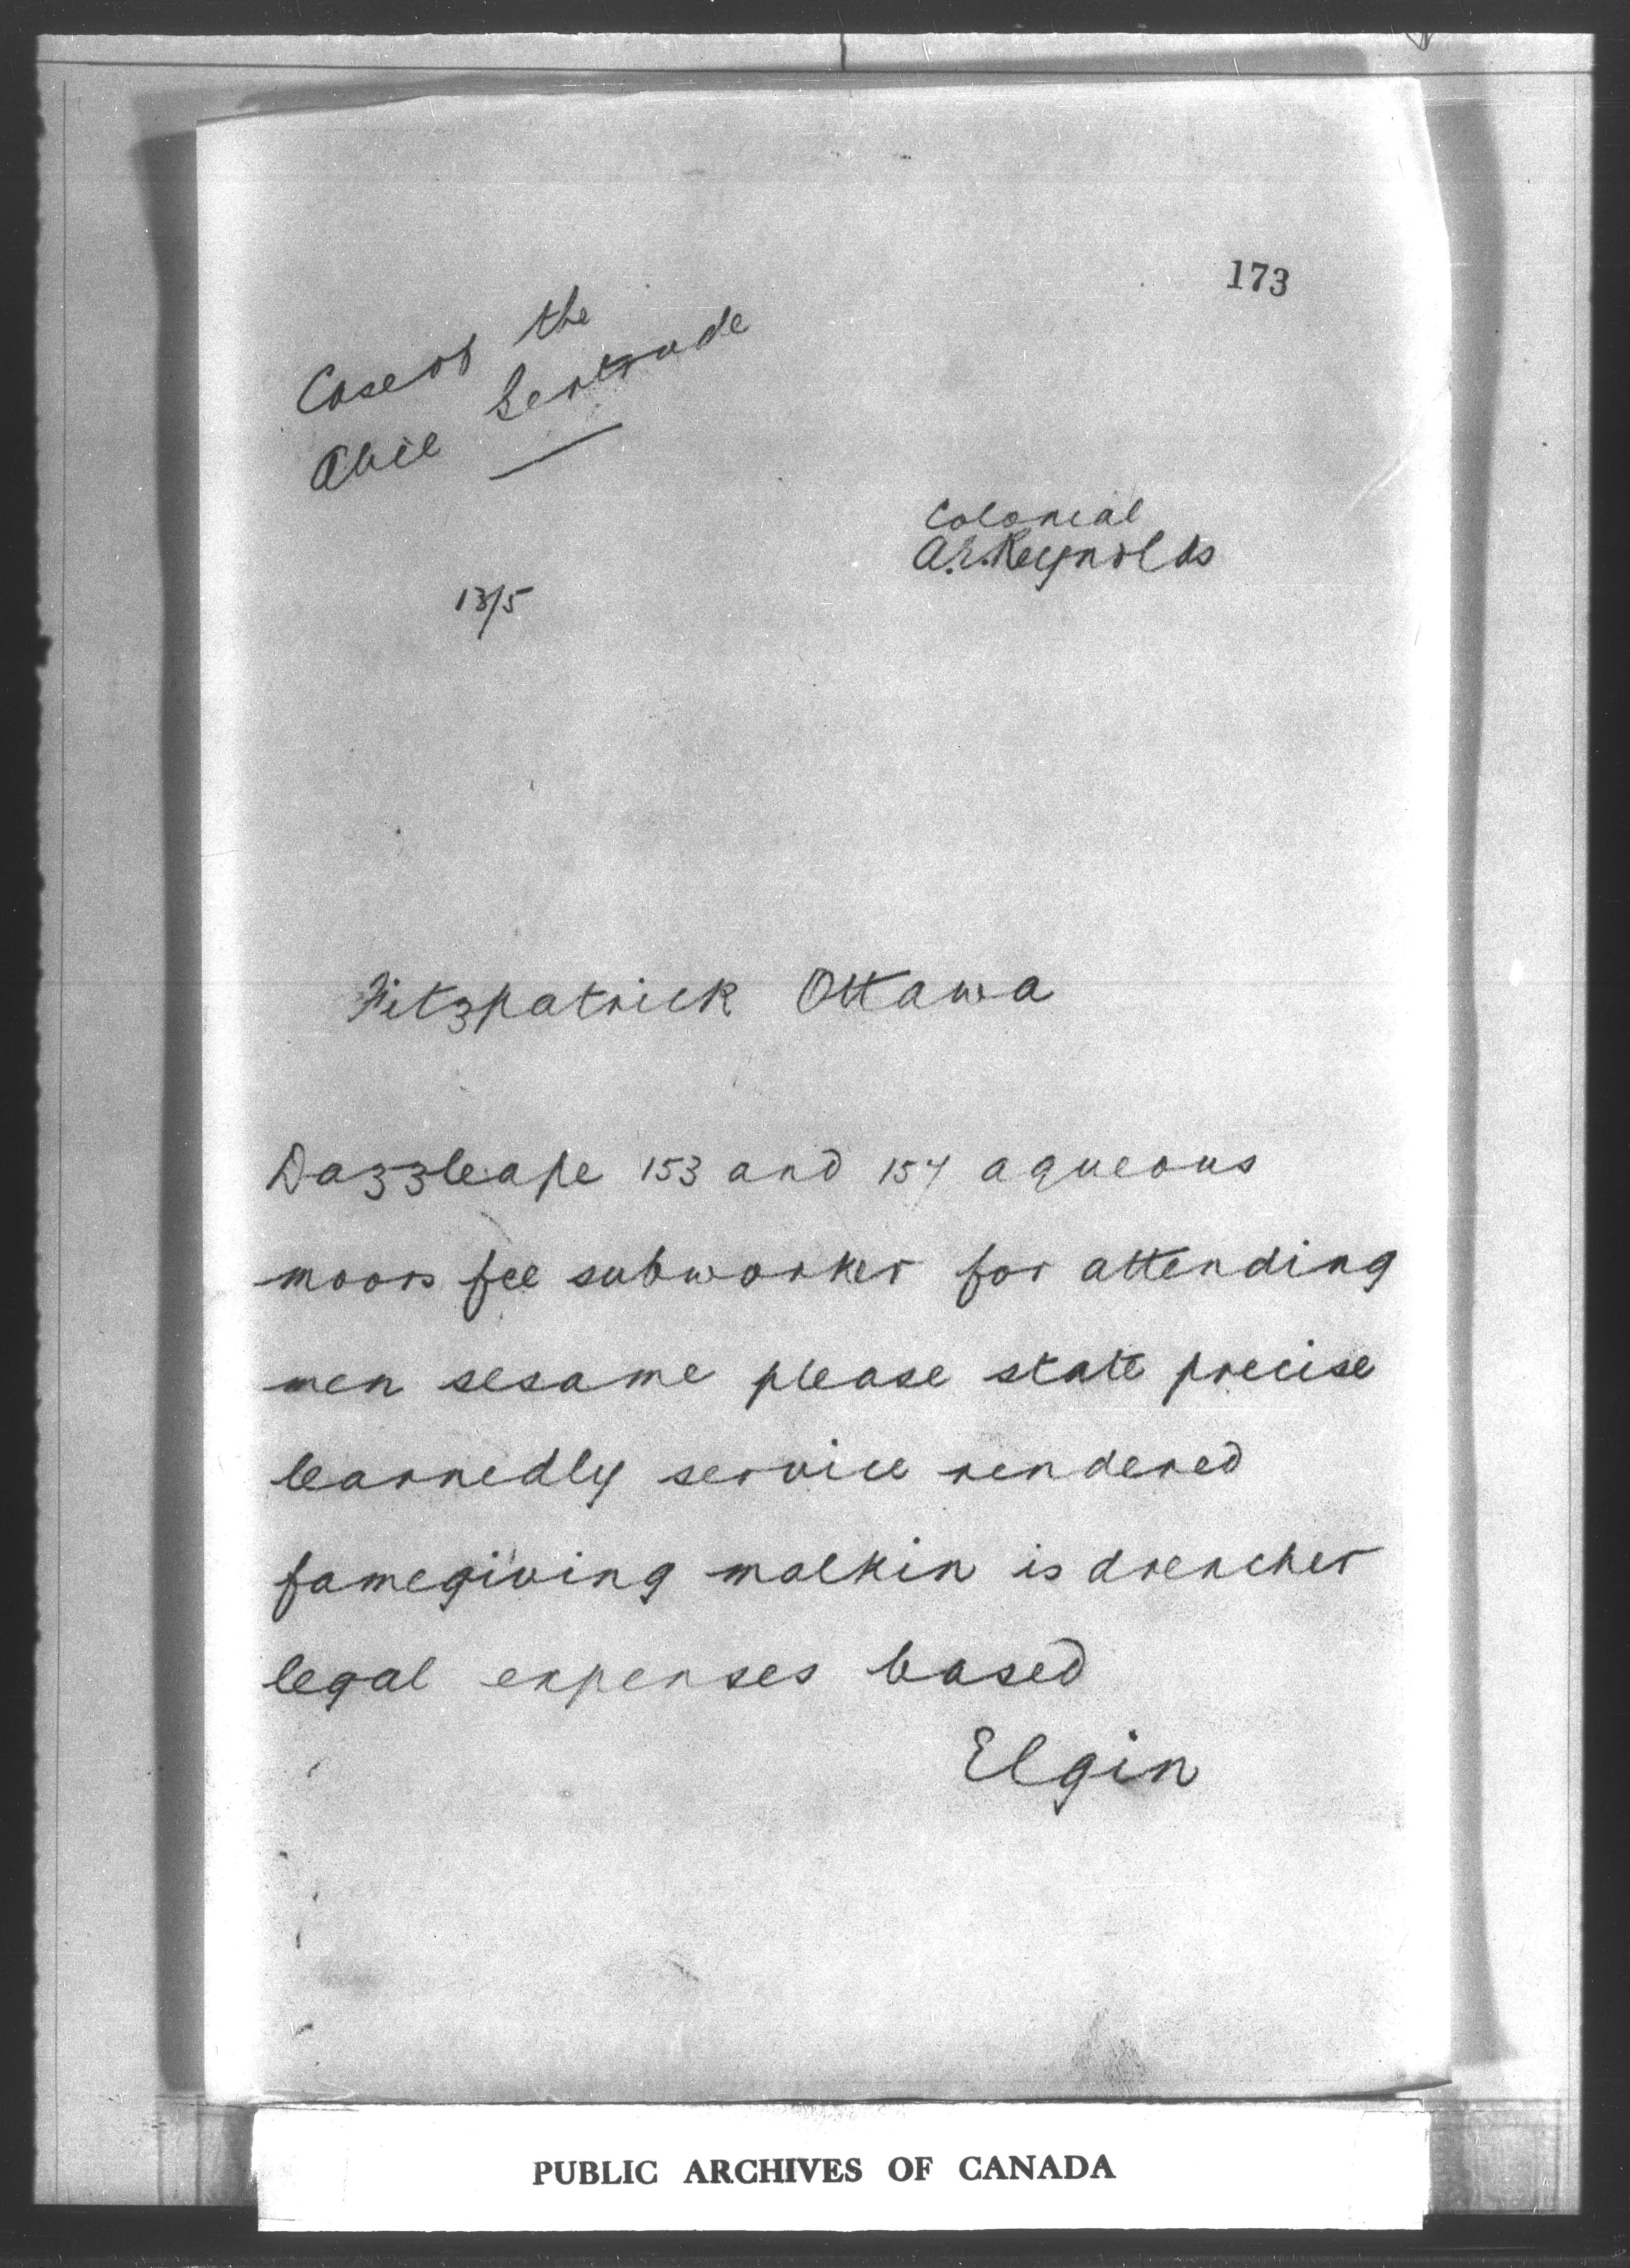 173
Case of the
Alice Gertrude
Colonial
A.E. Reynolds
13/5
Fitzpatrick Ottawa
Dazzleape 153 and 154 aqueous
moors fee subworker for attending
men sesame please state precise
learnedly service rendered
famegiving malkin is drencher
legal expenses based
Elgin
PUBLIC ARCHIVES OF CANADA